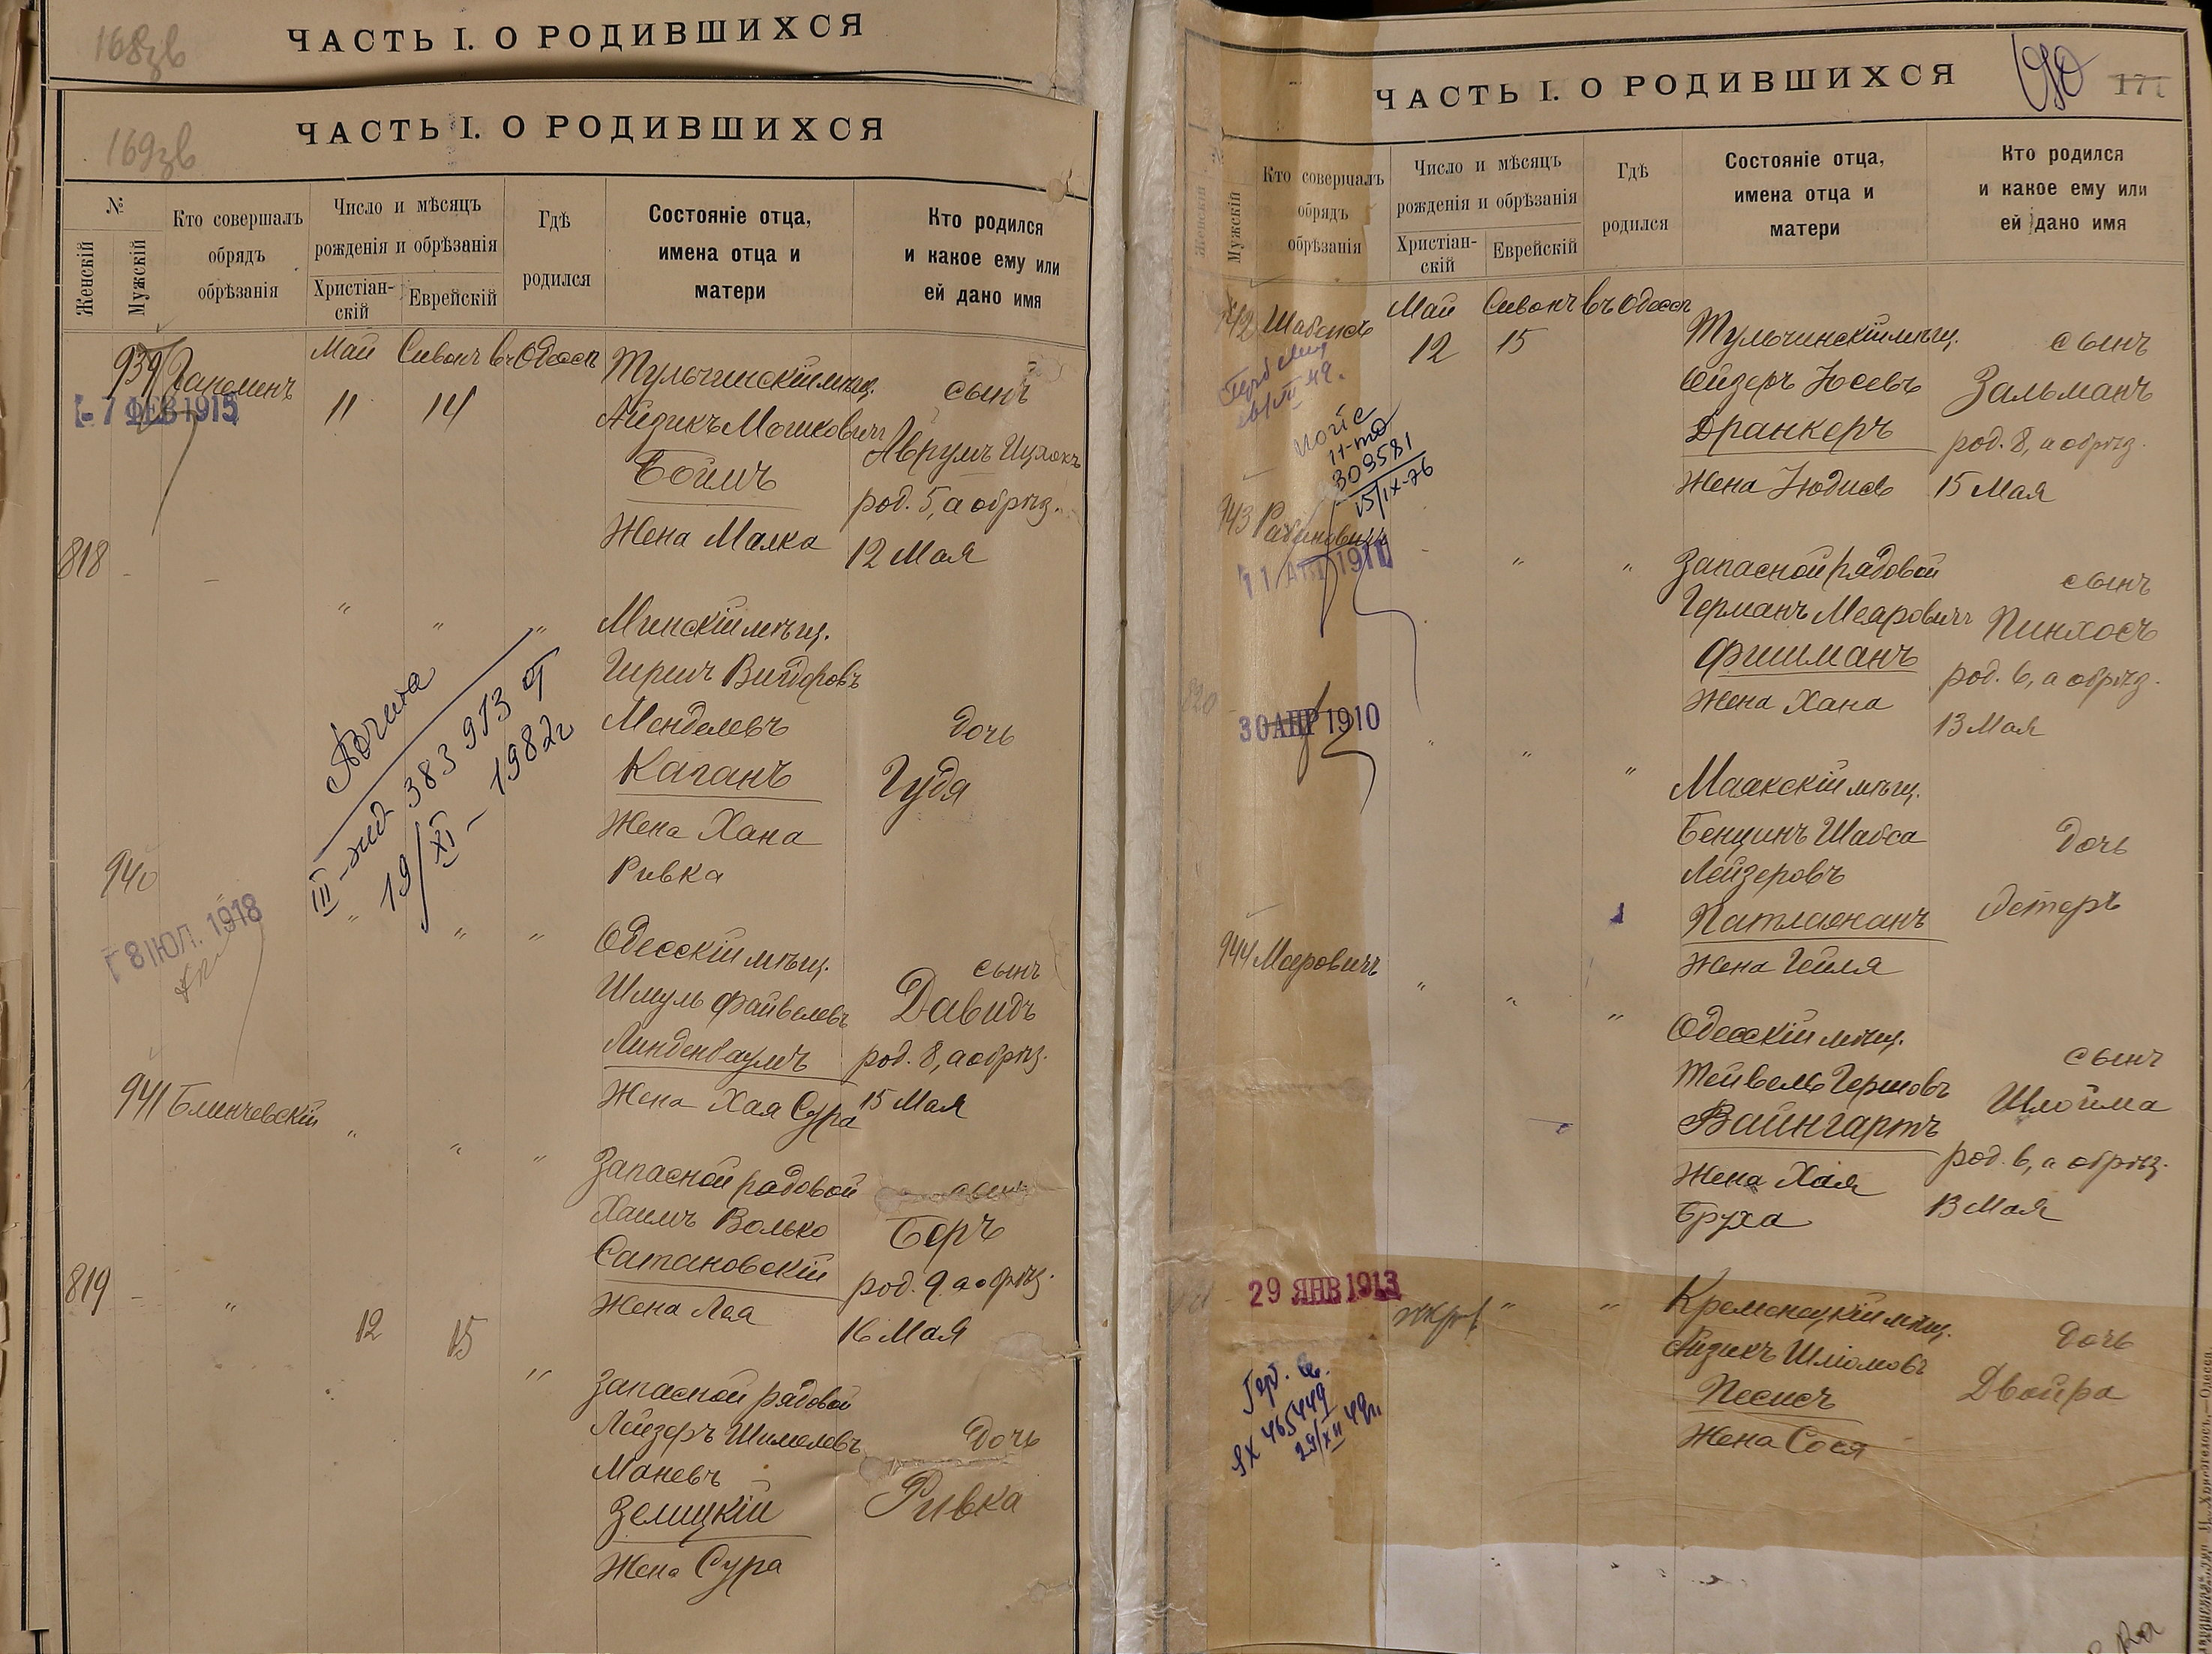 168зв
ЧАСТЬ I. О РОДИВШИХСЯ
169зв
ЧАСТЬ I. О РОДИВШИХСЯ
№
Женскій
Мужскій
Кто совершалъ
обрядъ
обрѣзанія
Число и мѣсяцъ
рожденія и обрѣзанія
Христіан-
скій
Еврейскій
Гдѣ
родился
Состояніе отца,
имена отца и
матери
Кто родился
и какое ему или
ей дано имя
939
- 7 ФЕВ 1915
Май
11
Сивонъ
14
въ Одессѣ
Тульчинскій мѣщ.
Айзикъ Мошковичъ
Боймъ
Жена Малка
сынъ
Аврумъ Ицхокъ
род. 5, а обрѣз.
12 Мая
818
-
-
"
"
"
Минскій мѣщ.
Гиршъ
Менделевъ
Каганъ
Жена Хана
Ривка
дочь
Гудя
383 973 от
19/XI - 1982г
940
18 ИЮЛ. 1918
"
"
"
Одесскій мѣщ.
Шмуль Файвелевъ
Линденбаумъ
Жена Хая Сура
сынъ
Давидъ
род. 8, а обрѣз.
15 Мая
941
Блинчевскій
"
"
"
Запасной рядовой
Хаимъ Волько
Сатановскій
Жена Лея
сынъ
Беръ
род. 9, а обрѣз.
16 Мая
819
-
"
12
15
"
Запасной рядовой
Лейзеръ Шмелевъ
Маневъ
Зелицкій
Жена Сура
дочь
Ривка
ЧАСТЬ I. О РОДИВШИХСЯ
171
Женскій
Мужскій
Кто совершалъ
обрядъ
обрѣзанія
Число и мѣсяцъ
рожденія и обрѣзанія
Христіан-
скій
Еврейскій
Гдѣ
родился
Состояніе отца,
имена отца и
матери
Кто родился
и какое ему или
ей дано имя
942
Май
12
Сивонъ
15
въ Одессѣ
Тульчинскій мѣщ.
Ойзеръ Іосевъ
Дранкеръ
Жена Юдисъ
сынъ
Зальманъ
род. 8, а обрѣз.
15 Мая
309581
15/IX-76
943
Рабиновичъ
"
"
Запасной рядовой
Германъ Меаровичъ
Фишманъ
Жена Хана
сынъ
Пинхосъ
род. 6, а обрѣз.
13 Мая
820
30 АПР 1910
"
"
"
Маякскій мѣщ.
Бенціинъ Шабса
Лейзеровъ
Патлажанъ
Жена Гейля
дочь
Эстеръ
944
Меровичъ
"
"
"
Одесскій мѣщ.
Тейвель Гершовъ
Вайнгартъ
Жена Хая
Бруха
сынъ
Шлойма
род. 6, а обрѣз.
13 Мая
29 ЯНВ 1913
"
"
Кременецкій мѣщ.
Айзикъ Шліомовъ
Песисъ
Жена Сося
дочь
Двойра
465449
29/XII 49г.